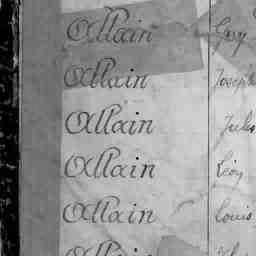 Allain Guy
Allain Joseph
Allain Jules
Allain Léon
Allain Louis
Allain